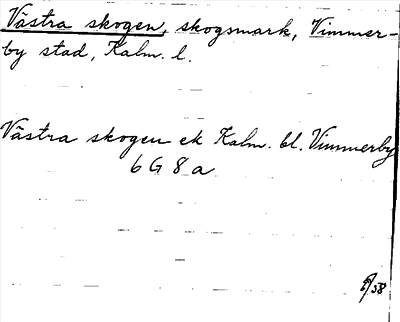 Västra skogen, skogsmark, Vimmer-
by stad, Kalm. l.
Västra skogen ek Kalm. bl. Vimmerby
6 G 8 a
/38